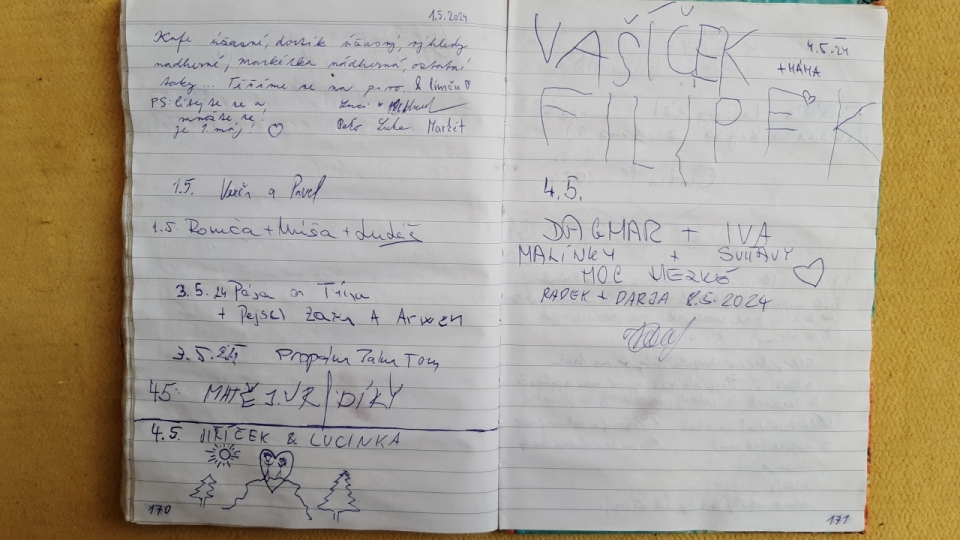 1.5.2024
Kafe úžasné, dortík úžasný, výhledy
nádherné, markétka nádherná, ostatní
taky... Těšíme se na pivo & limču
PS: líbejte se a
množte se,
je 1. máj
Luci
Petr Luke Markét
1.5. Verča a Pavel
1.5. Romča + Míša + Luděk
3.5.24 Pája a Tína
+ Pejsci Zazu A Arwen
3.5.24 Tom
4.5 MATĚJ. VR / DÍKY
4.5. JIŘÍČEK & LUCINKA
170
VAŠÍČEK
4.5.24
+ MÁMA
FILÍPEK
4.5.
DAGMAR + IVA
MALÍNKY + SVITAVY
MOC HEZKÉ
RADEK + DARJA 8.5.2024
171